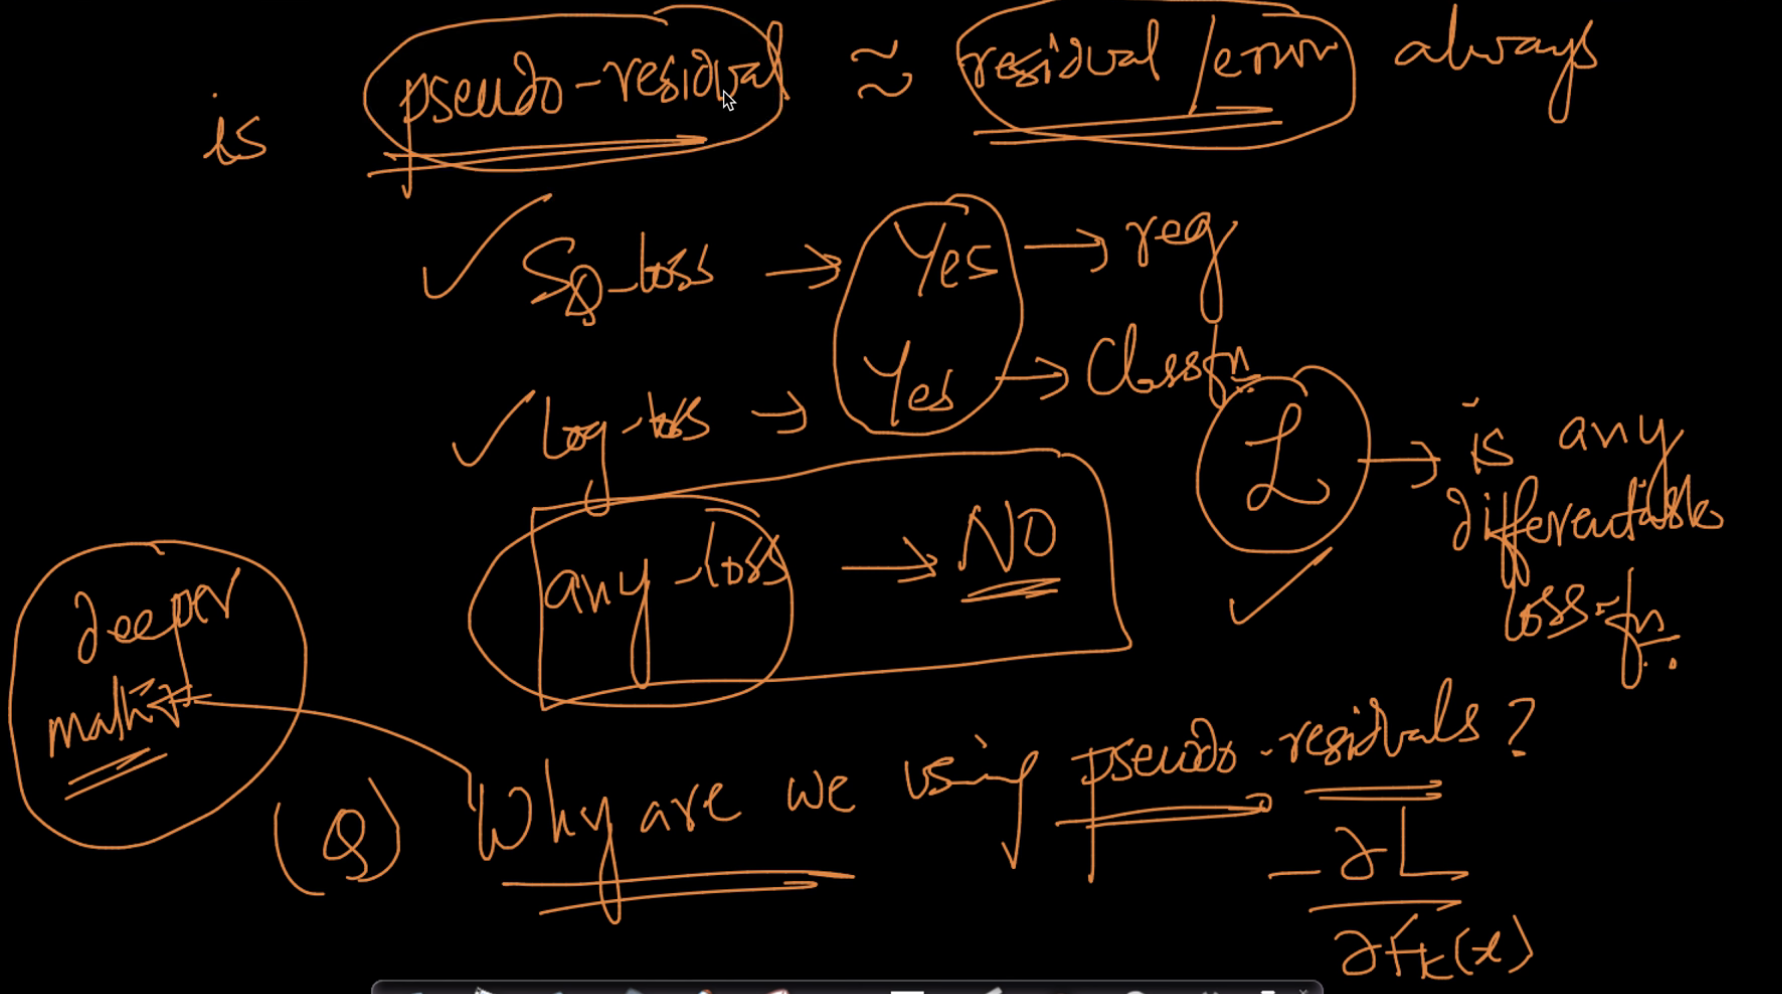 is pseudo-residual ≈ residual/error always
✓ Sq-loss → Yes → reg
✓ Log-loss → Yes → Classfn.
any-loss → NO
L → is any
differentiable
loss-fn.
deeper
math
(Q) Why are we using pseudo-residuals?
-∂L
∂Fk(x)